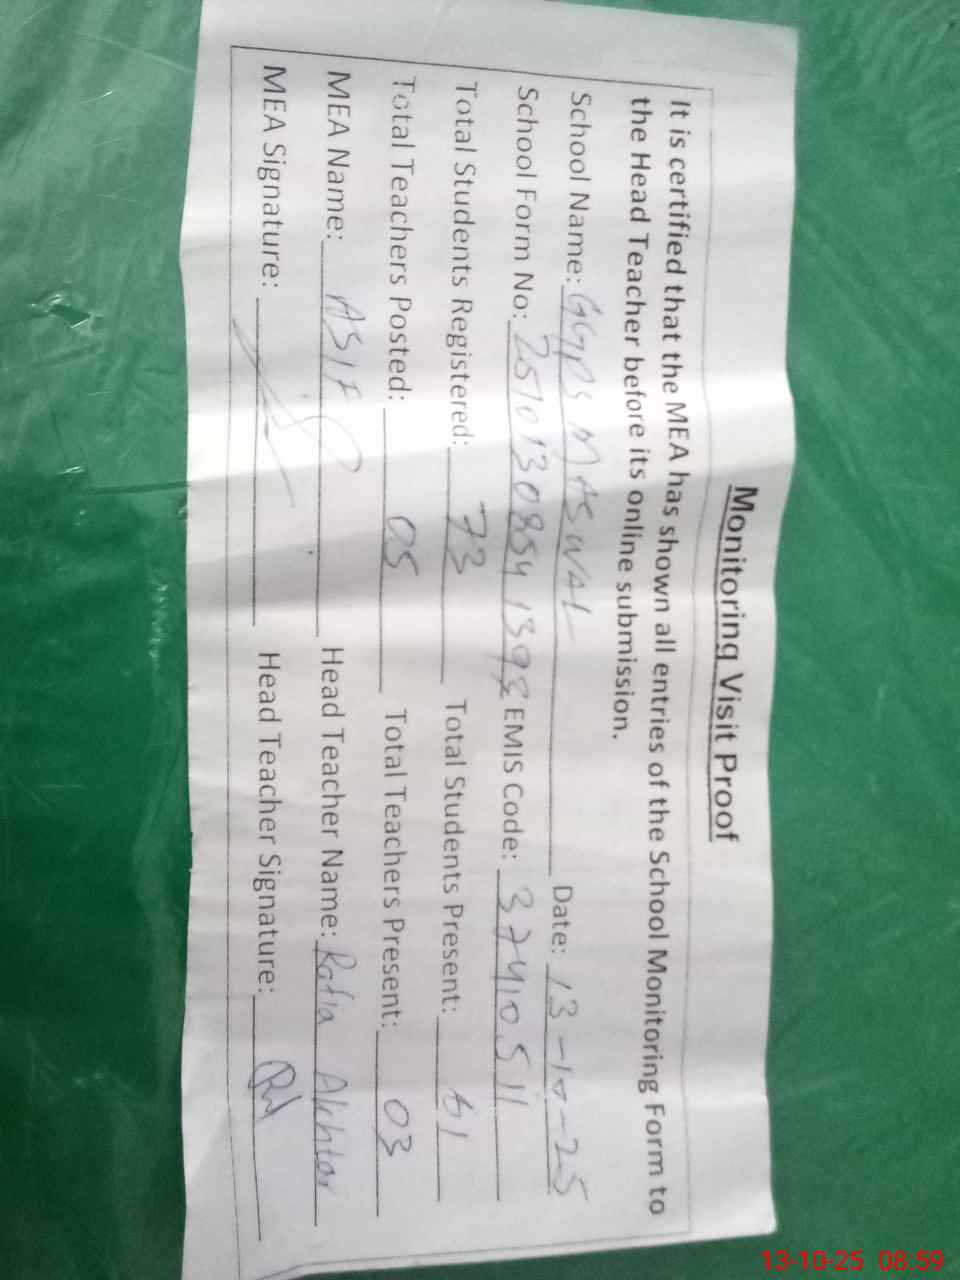 Monitoring Visit Proof
It is certified that the MEA has shown all entries of the School Monitoring Form to
the Head Teacher before its online submission.
School Name: GGPS MASWAL Date: 13-10-25
School Form No: 2510130854 EMIS Code: 37410511
Total Students Registered: 73 Total Students Present: 61
Total Teachers Posted: 05 Total Teachers Present: 03
MEA Name: ASIF Head Teacher Name: Rafia Akhtar
MEA Signature: Head Teacher Signature:
13-10-25 08:59